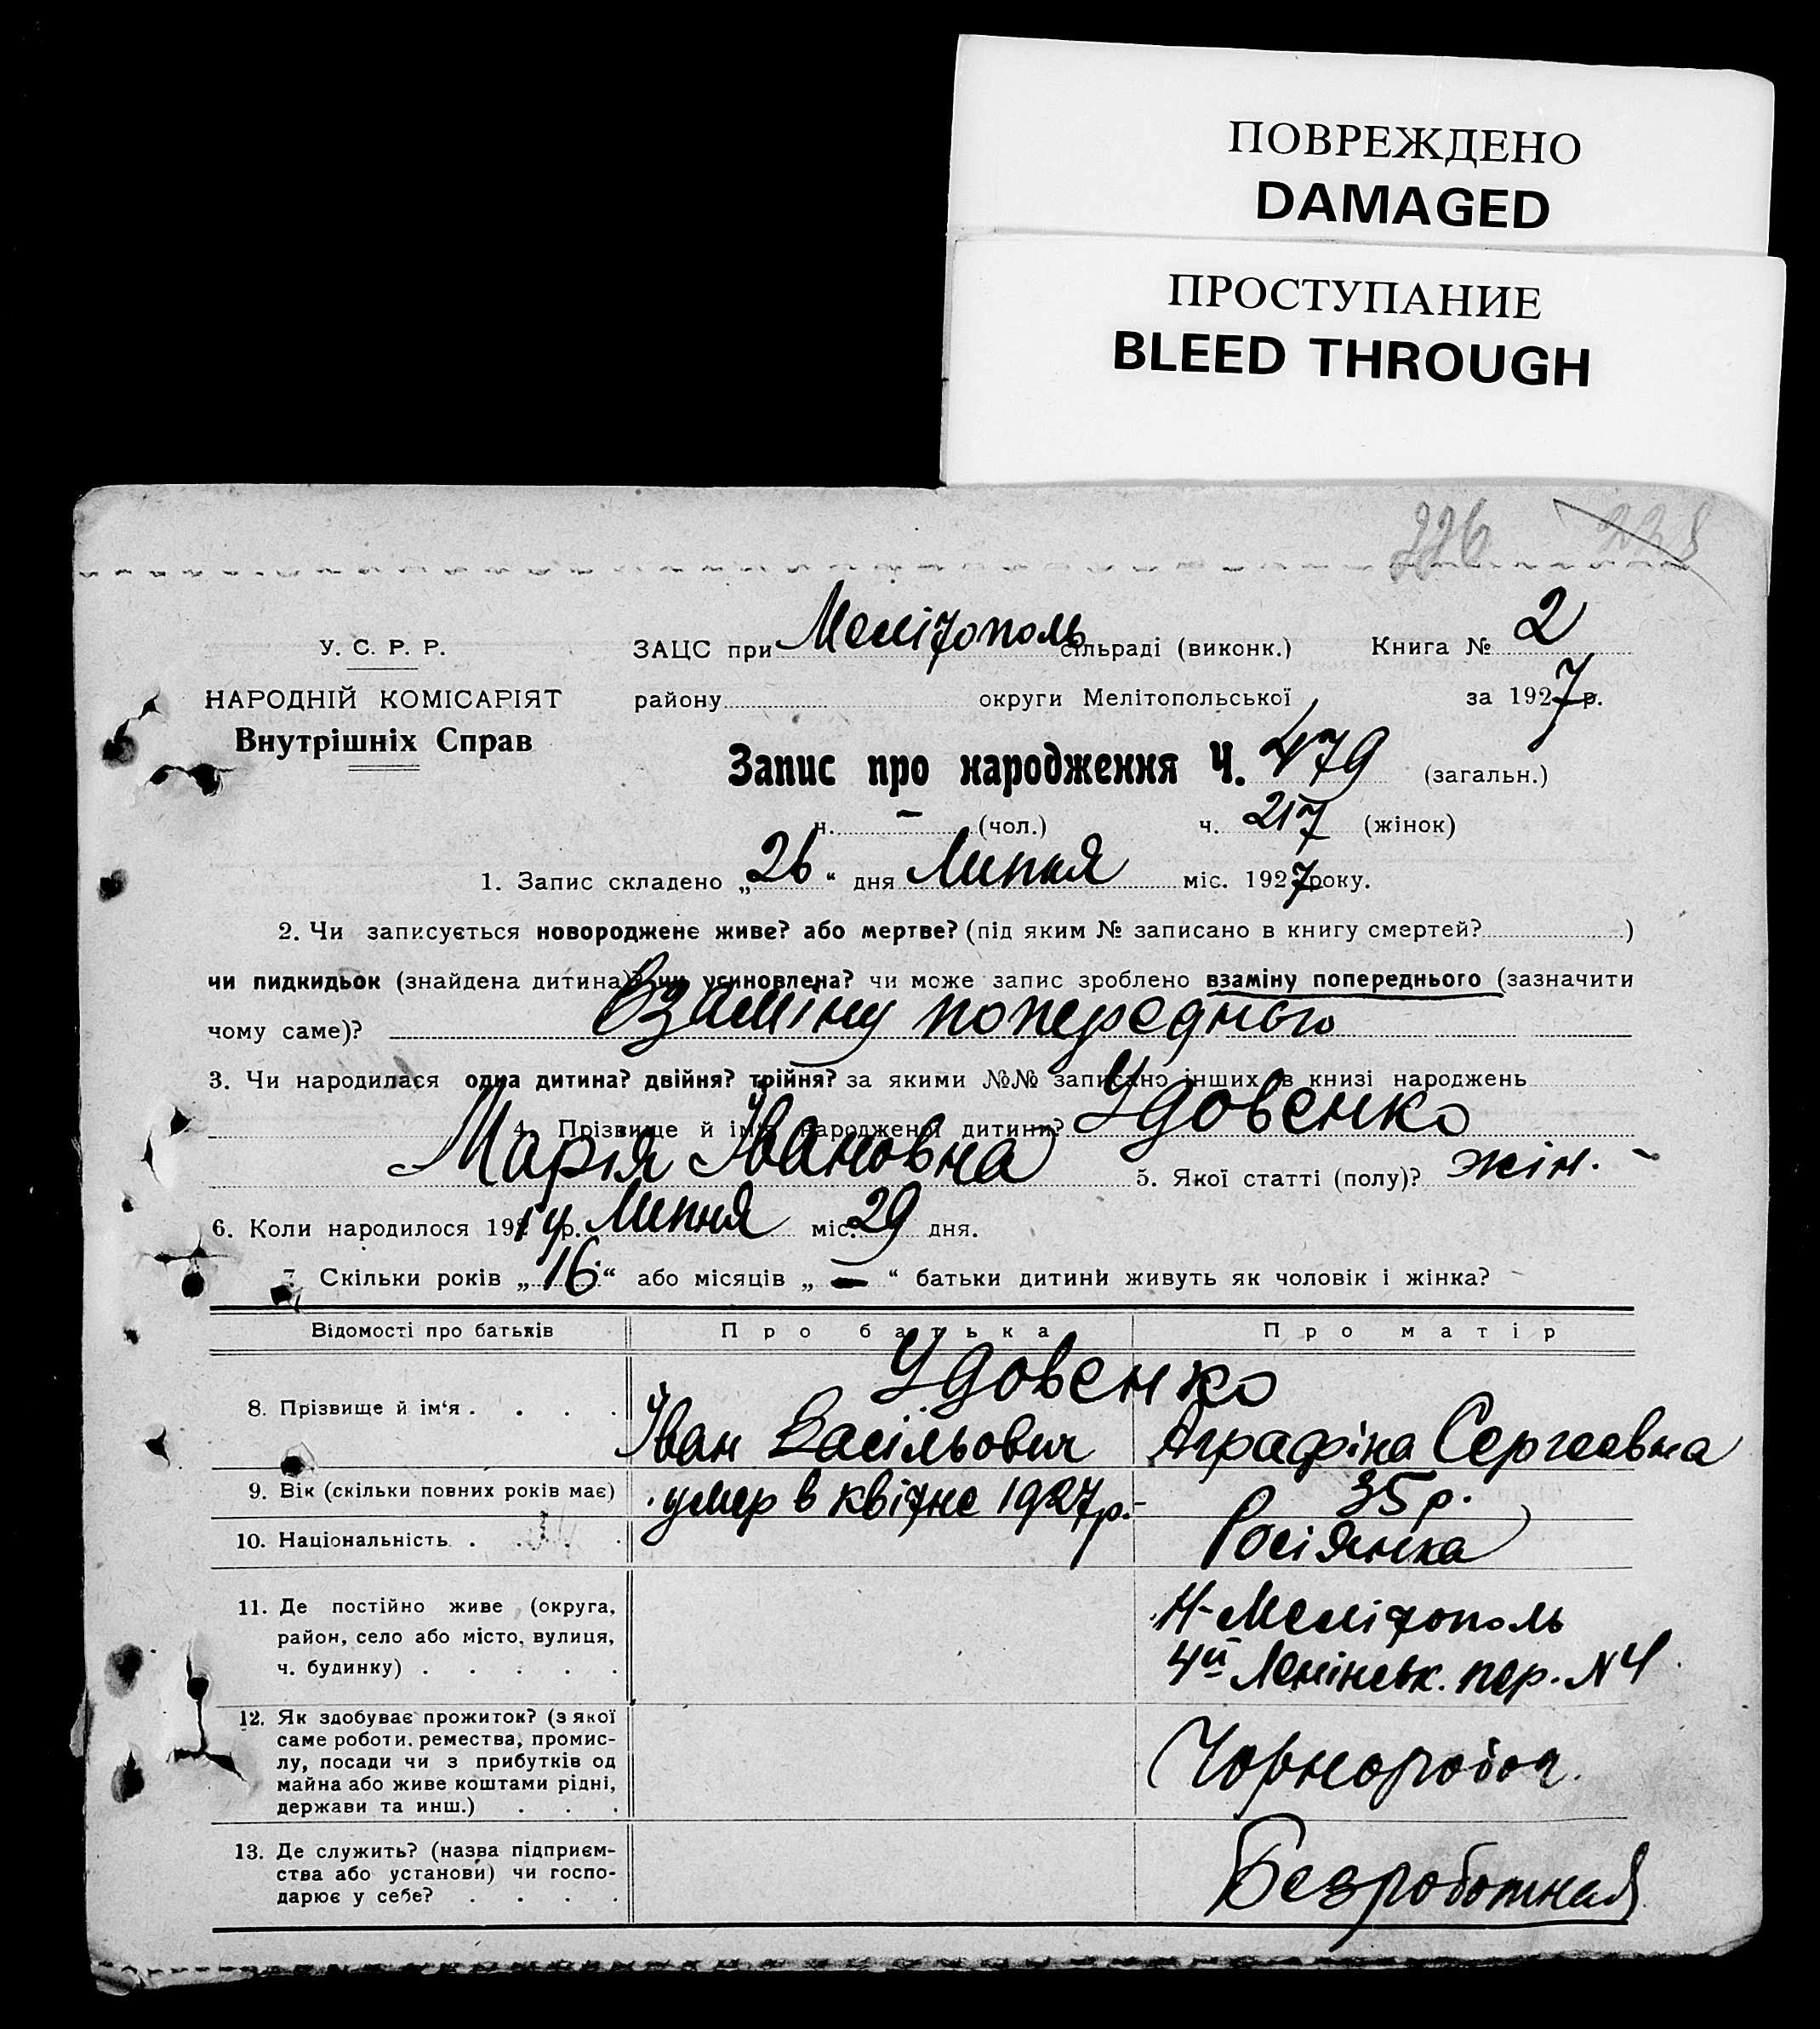 ПОВРЕЖДЕНО
DAMAGED
ПРОСТУПАНИЕ
BLEED THROUGH
226 228
У. С. Р. Р.
НАРОДНІЙ КОМІСАРІЯТ
Внутрішніх Справ
ЗАЦС при Мелітополь сільраді (виконк.) Книга № 2
району округи Мелітопольської за 1927 р.
Запис про народження Ч. 479 (загальн.)
ч. – (чол.) ч. 217 (жінок)
1. Запис складено „26“ дня Липня міс. 1927 року.
2. Чи записується новороджене живе? або мертве? (під яким № записано в книгу смертей? )
чи пидкидьок (знайдена дитина)? чи усиновлена? чи може запис зроблено взаміну попереднього (зазначити
чому саме)? Взаміну попереднього
3. Чи народилася одна дитина? двійня? трійня? за якими №№ записано інших в книзі народжень
4. Прізвище й ім'я народженої дитини? Удовенко
Марія Івановна 5. Якої статті (полу)? жін. –
6. Коли народилося 192 р. Липня міс. 29 дня.
7. Скільки років „16“ або місяців „–“ батьки дитини живуть як чоловік і жінка?
Відомості про батьків Про батька Про матір
Удовенко
8. Прізвище й ім‘я . . . . Іван Васільович Аграфіна Сергеевна
9. Вік (скільки повних років має) умер в квітне 1927р. – 35 р.
10. Національність . . . . Росіянка
11. Де постійно живе (округа,
район, село або місто, вулиця,
ч. будинку) . . . . .
Н-Мелітополь
4й Ленінськ. пер. N 4
12. Як здобуває прожиток? (з якої
саме роботи, ремества, промис-
лу, посади чи з прибутків од
майна або живе коштами рідні,
держави та инш.) . . .
Чорноробоч.
13. Де служить? (назва підприєм-
ства або установи) чи госпо-
дарює у себе? . . . .
Безработная